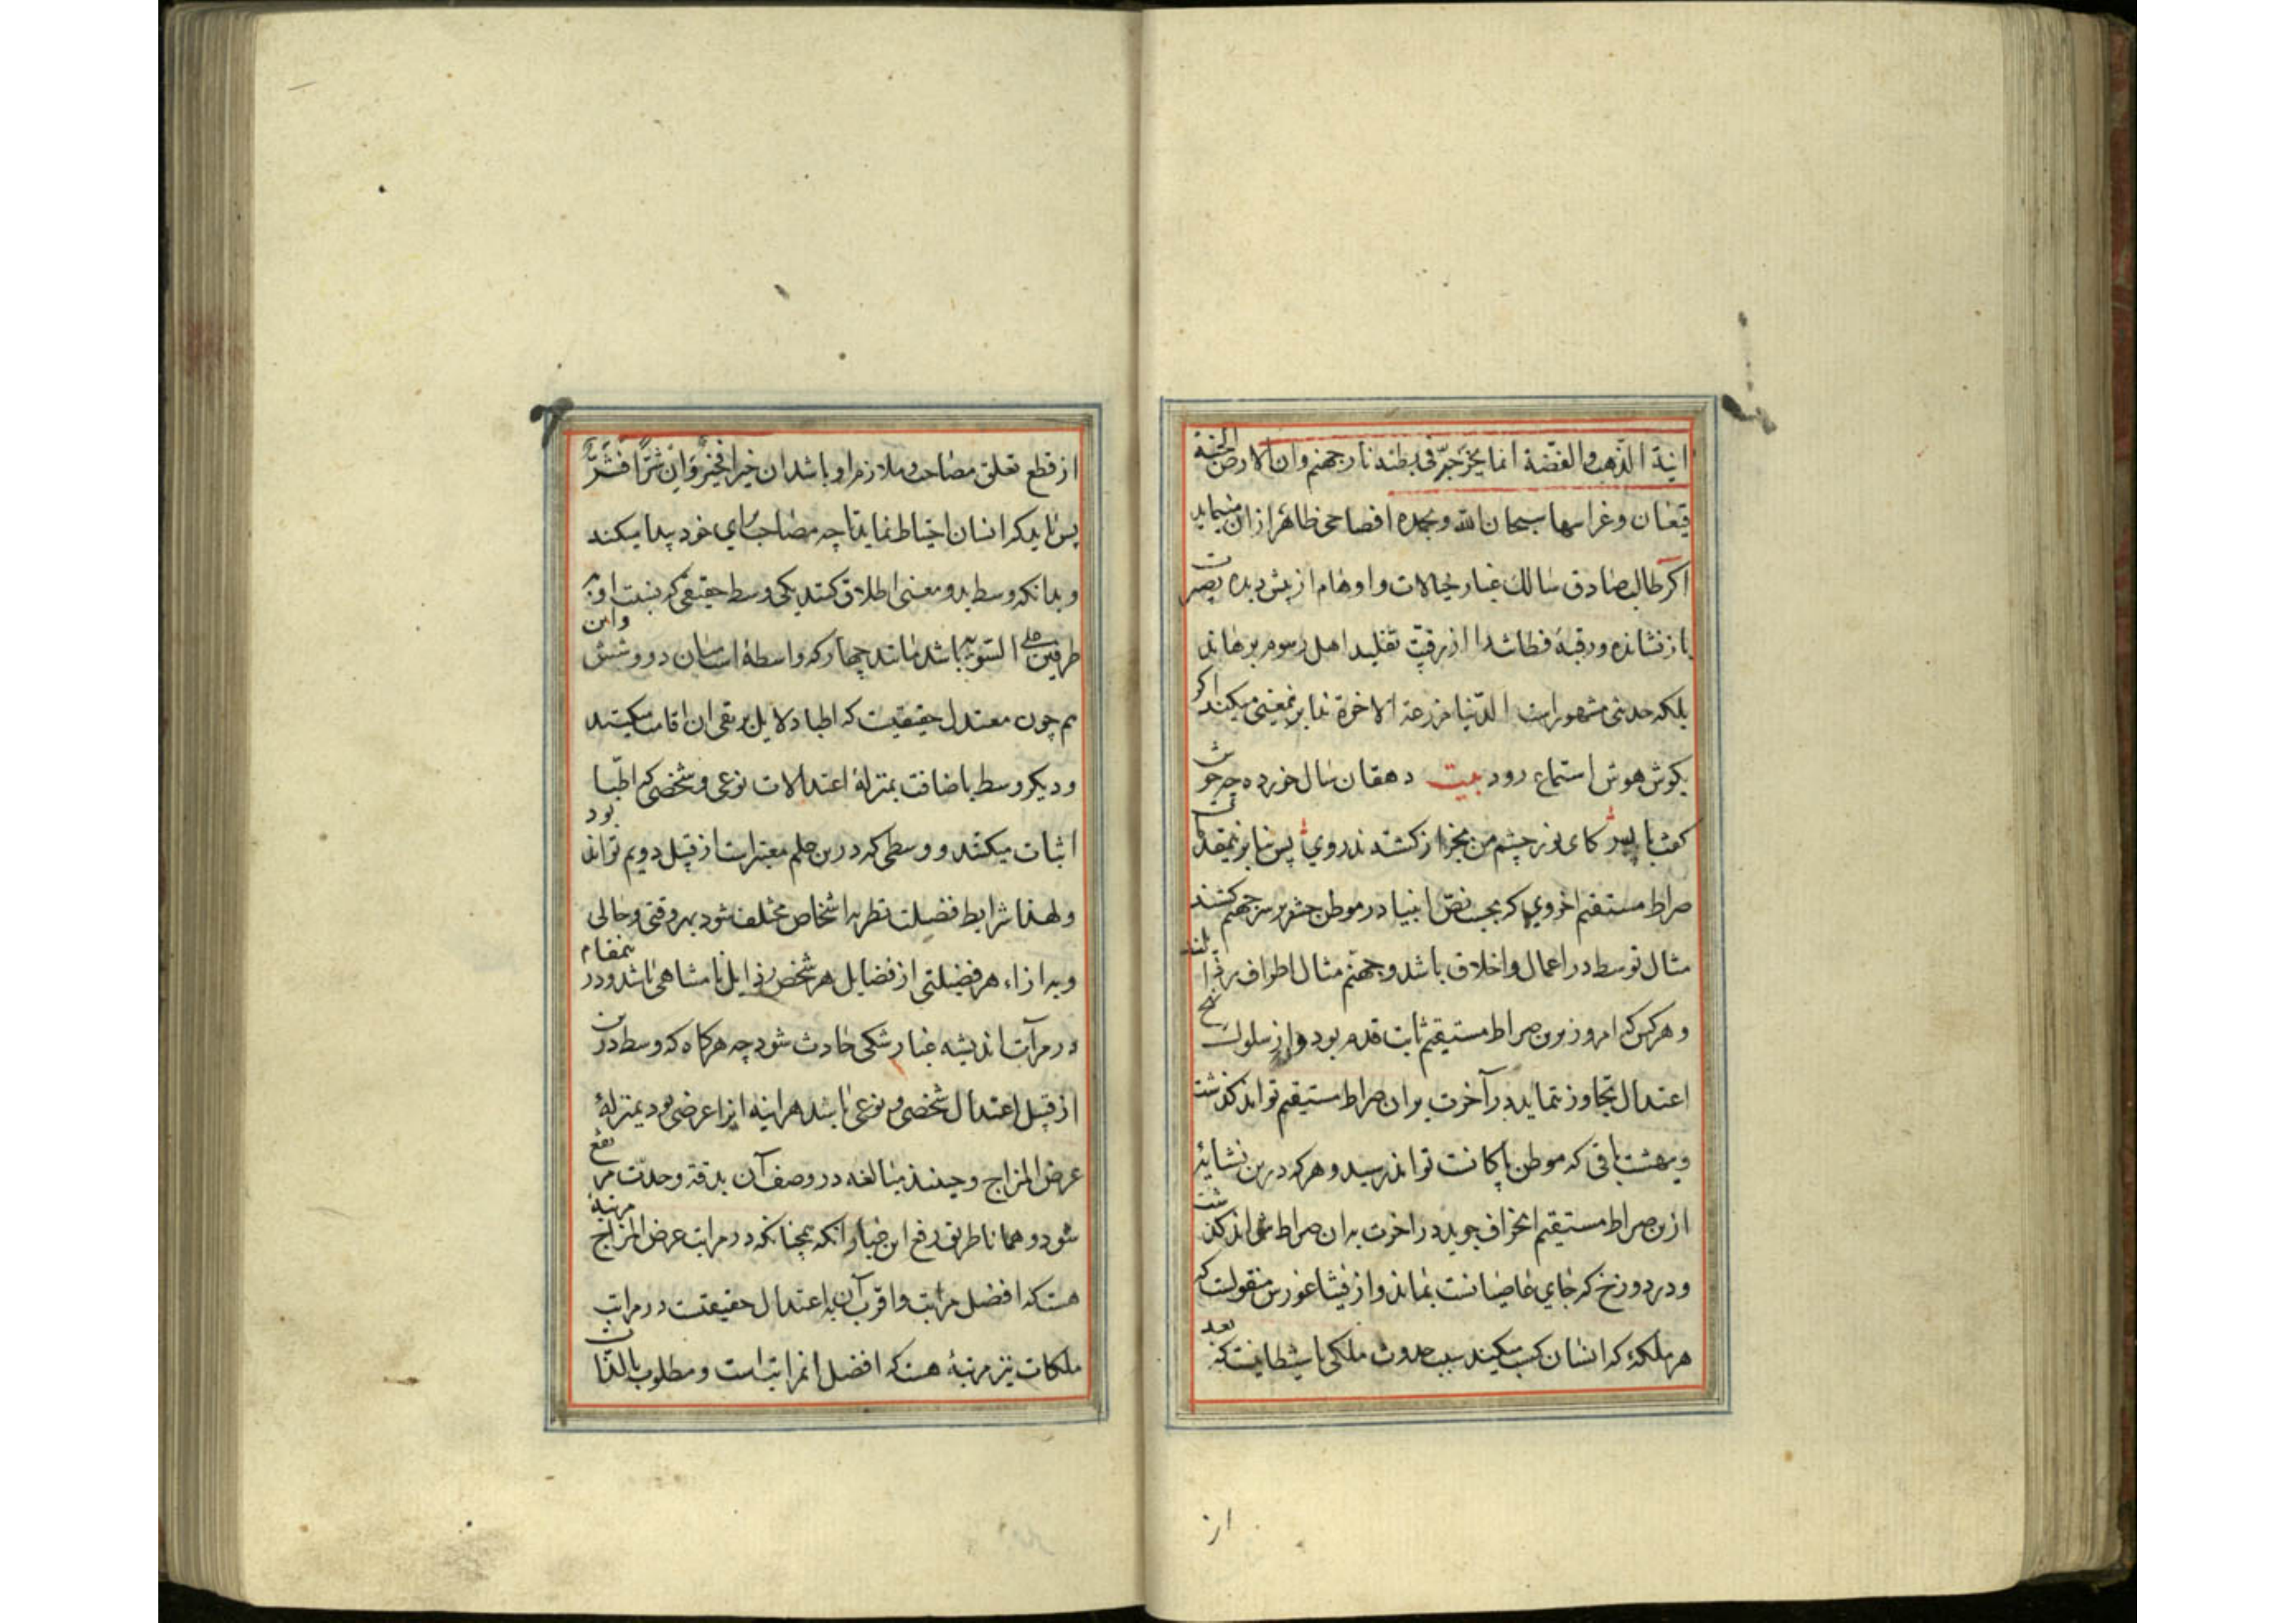 انية الذّهب والفضّة انما يجرجر فى بطنه نار جهنم وان الارض الجنة
قيعان وغراسها سبحان الله وبحمده افصاحى ظاهر ازان مينمايد
اكر طالب صادق سالك غبار خيالات واوهام از پيش ديده بصيرت
باز نشانده ورقبۀ فطانت را از رقيّت تقليد اهل رسوم برهاند
بلكه حديث مشهور است الدّنيا مزرعة الاخرة نما برنمعينى ميكند اكر
بكوش هوش استماع رود بيت دهقان سال خورده چه خوش
كفت با پسر كاى نور چشم من بجز از كشته ندروي پس بنابرنمقدمات
صراط مستقيم اخروي كه بحسب نصّ انبيا در موطن حشر بر سر جهنم كشند
مثال توسط در اعمال واخلاق باشد وجهنم مثال اطراف
وهركس كه امروز برين صراط مستيقم ثابت قدم بود واز سلوك نهج
اعتدال تجاوز ننمايد در آخرت بران صراط مستيقم تواند كذشت
وبهشت باقى كه موطن پاكانست تواند رسيد وهركه درين نشايۀ
ازين صراط مستقيم انحراف جويد در اخرت بدان صراط نتواند كذشت
ودر دوزخ كه جاي عاصيانست بماند واز فيثاغورس منقولست كه
هر ملكۀ كه انسان كسب ميكند سبب حدوث ملكى يا شيطانيست كه بعد
از
از قطع تعلق مصاحب وملازم او باشد ان خيرا فخيرٌ وان شرّا فشرٌّ
پس بايد كه انسان احتياط نمايد تا چه مصاحب براي خود پيدا ميكند
وبدانكه وسط بدو معنى اطلاق كنند يكى وسط حقيقى كه نسبت او به
طرفين على السّويّه باشد مانند چهار كه واسطۀ است ميان دو وشش واين
هم چون معتدل حقيقيست كه اطبا دلايل بر نفى ان اقامت ميكنند
وديكر وسط باضافت بمنزلۀ اعتدالات نوعى وشخصى كه اطبّا
اثبات ميكنند ووسطى كه درين علم معتبر است از قبيل دويم تواند بود
ولهذا شرايط فضيلت نظر به اشخاص مختلف شود بهر وقتى وحالى
وبه ازاء هر فضيلتى از فضايل هر شخص رذايل نا متناهى باشد ودر ينمقام
در مرآت انديشه غبار شكى حادث شود چه هركاه كه وسط درين
از قبيل اعتدال شخصى ونوعى باشد هراينه انرا عرضى بود بمنزلۀ
عرض المزاج وچندين مبالغه در وصف آن بدقة وحدّت مرتفع
شود وهمانا طريق رفع اين غبار انكه همچنانكه در مراتب عرض المزاج مرتبۀ
هست كه افضل مراتب واقرب آن به اعتدال حقيقت در مراتب
ملكات نيز مرتبۀ هست كه افضل انمراتب است ومطلوب بالذّات